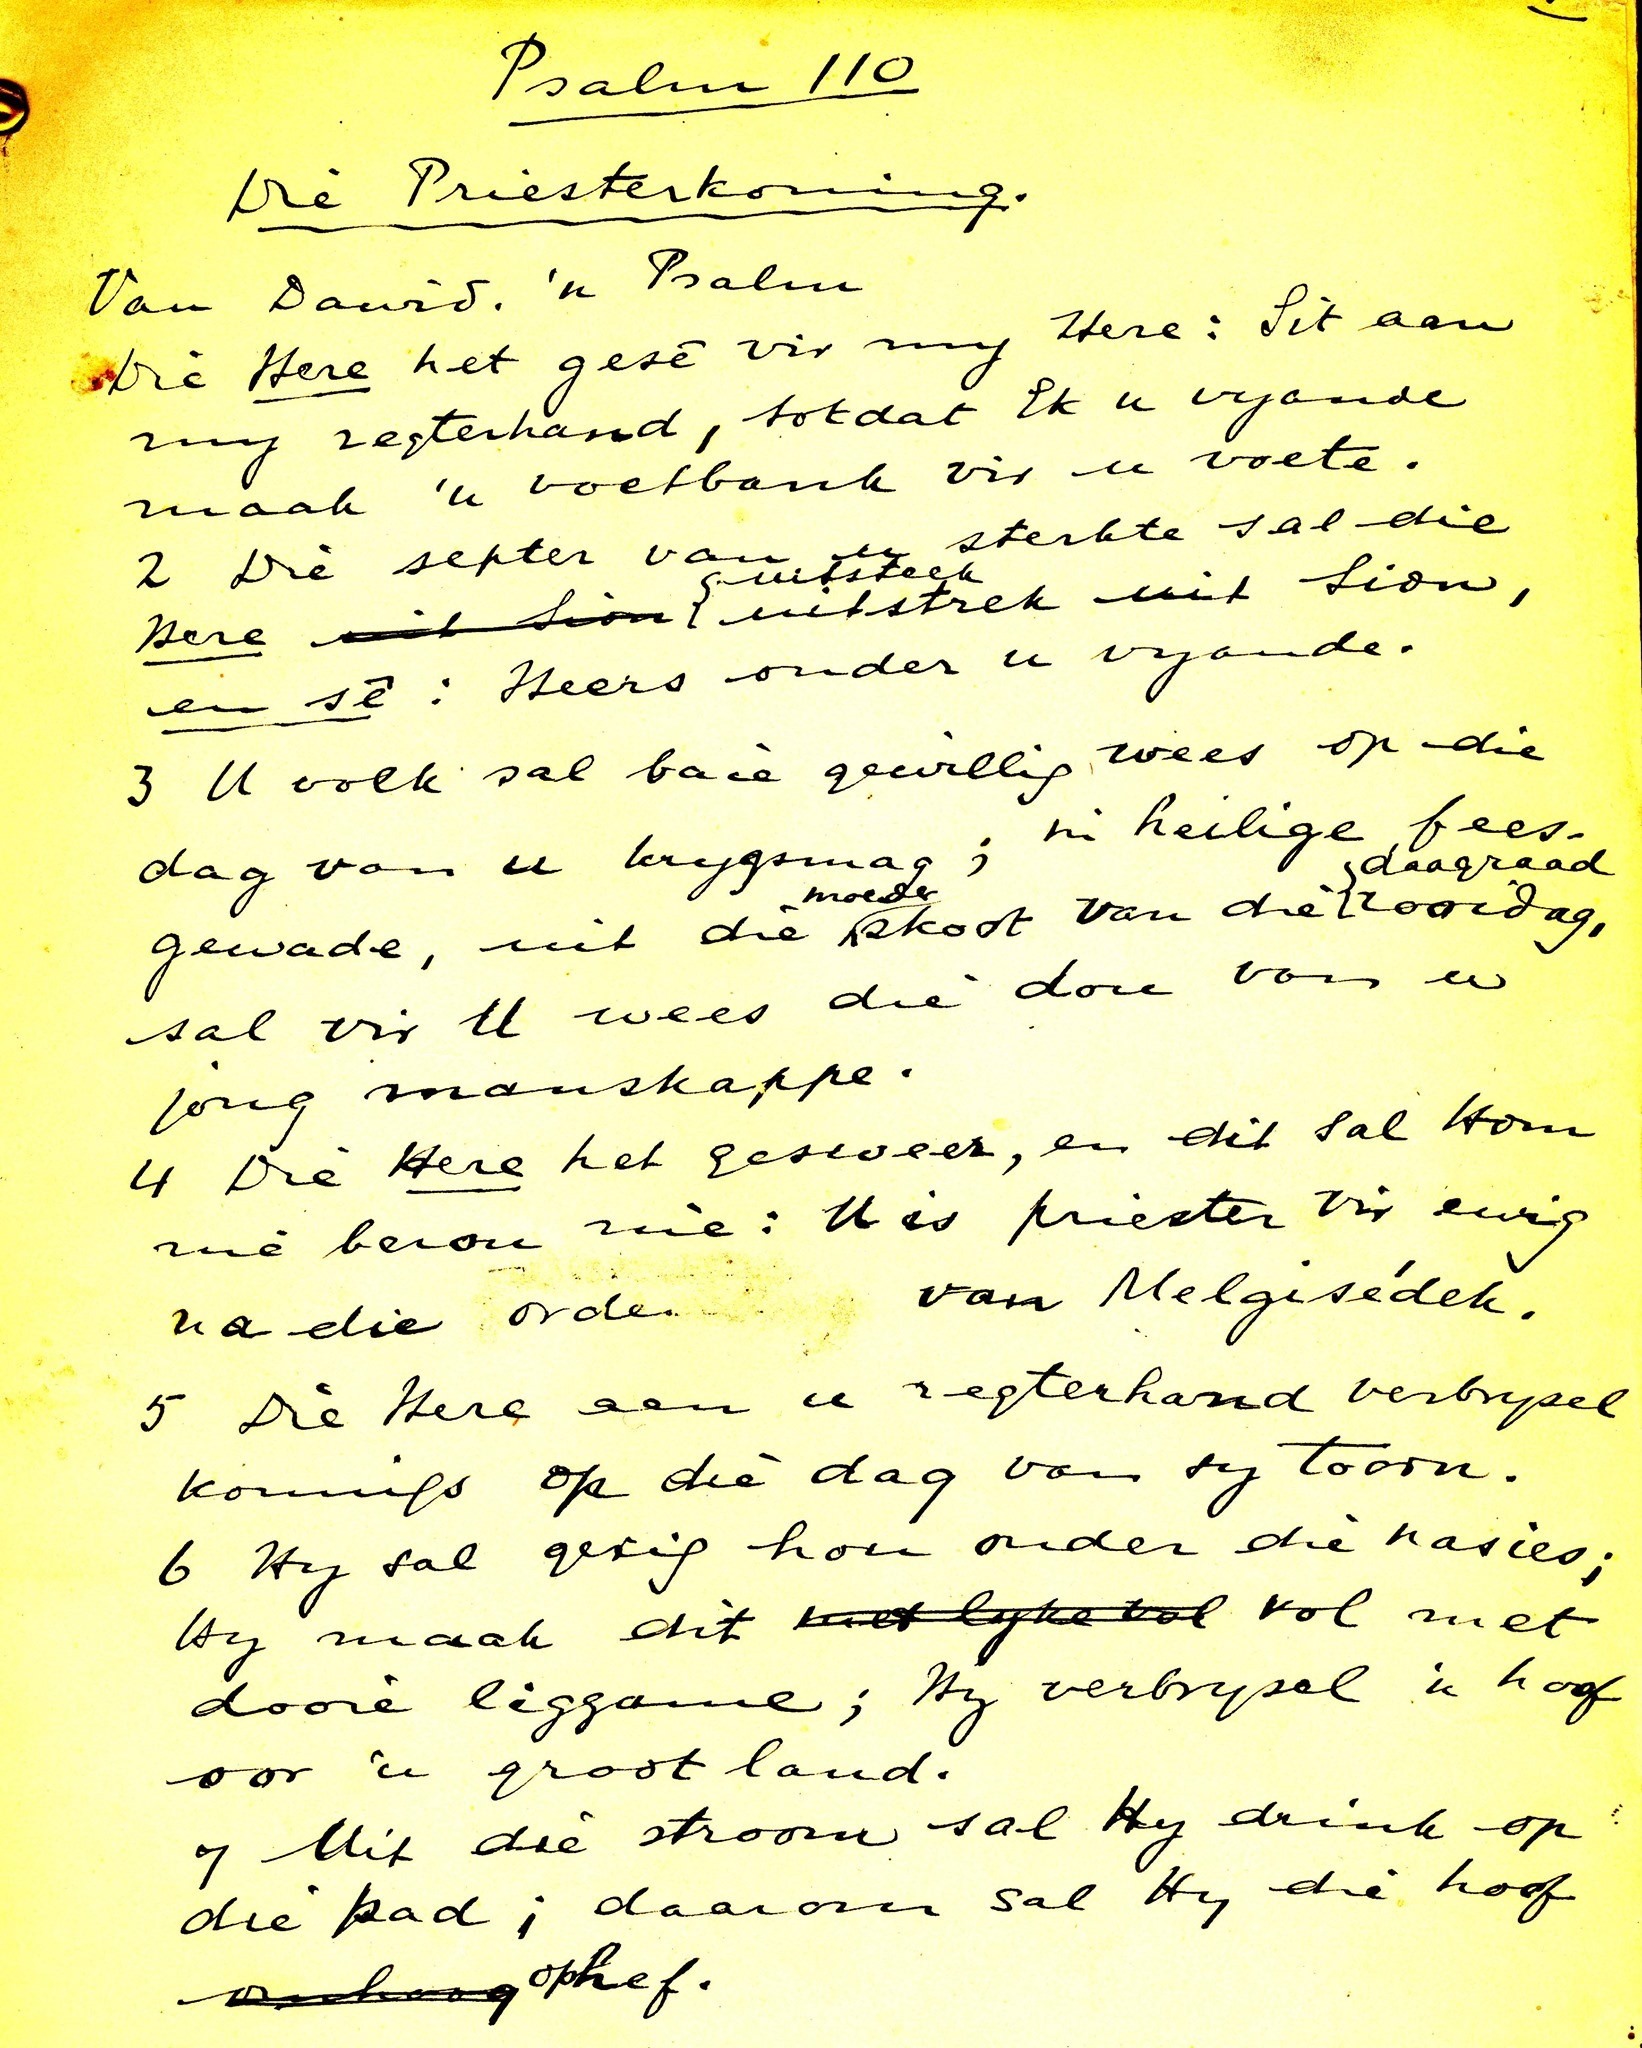 Psalm 110
Die Priesterkoning.
Van Dawid. 'n Psalm
Die Here het gesê vir my Here: Sit aan
my regterhand, totdat Ek u vyande
maak 'n voetbank vir u voete.
2 Die septer van u sterkte sal die
uitsteek
Here uit Sion uitstrek uit Sion,
en sê: Heers onder u vyande.
3 U volk sal baie gewillig wees op die
dag van u krygsmag; in heilige fees-
daagraad
moeder
gewade, uit die skoot van die rooidag,
sal vir U wees die dou van u
jong manskappe.
4 Die Here het gesweer, en dit sal Hom
nie berou nie: U is priester vir ewig
na die orde van Melgisédek.
5 Die Here aan u regterhand verbrysel
konings op die dag van sy toorn.
6 Hy sal gerig hou onder die nasies;
Hy maak dit met lyke vol vol met
dooie liggame; Hy verbrysel 'n hoof
oor 'n groot land.
7 Uit die stroom sal Hy drink op
die pad; daarom sal Hy die hoof
omhoog ophef.